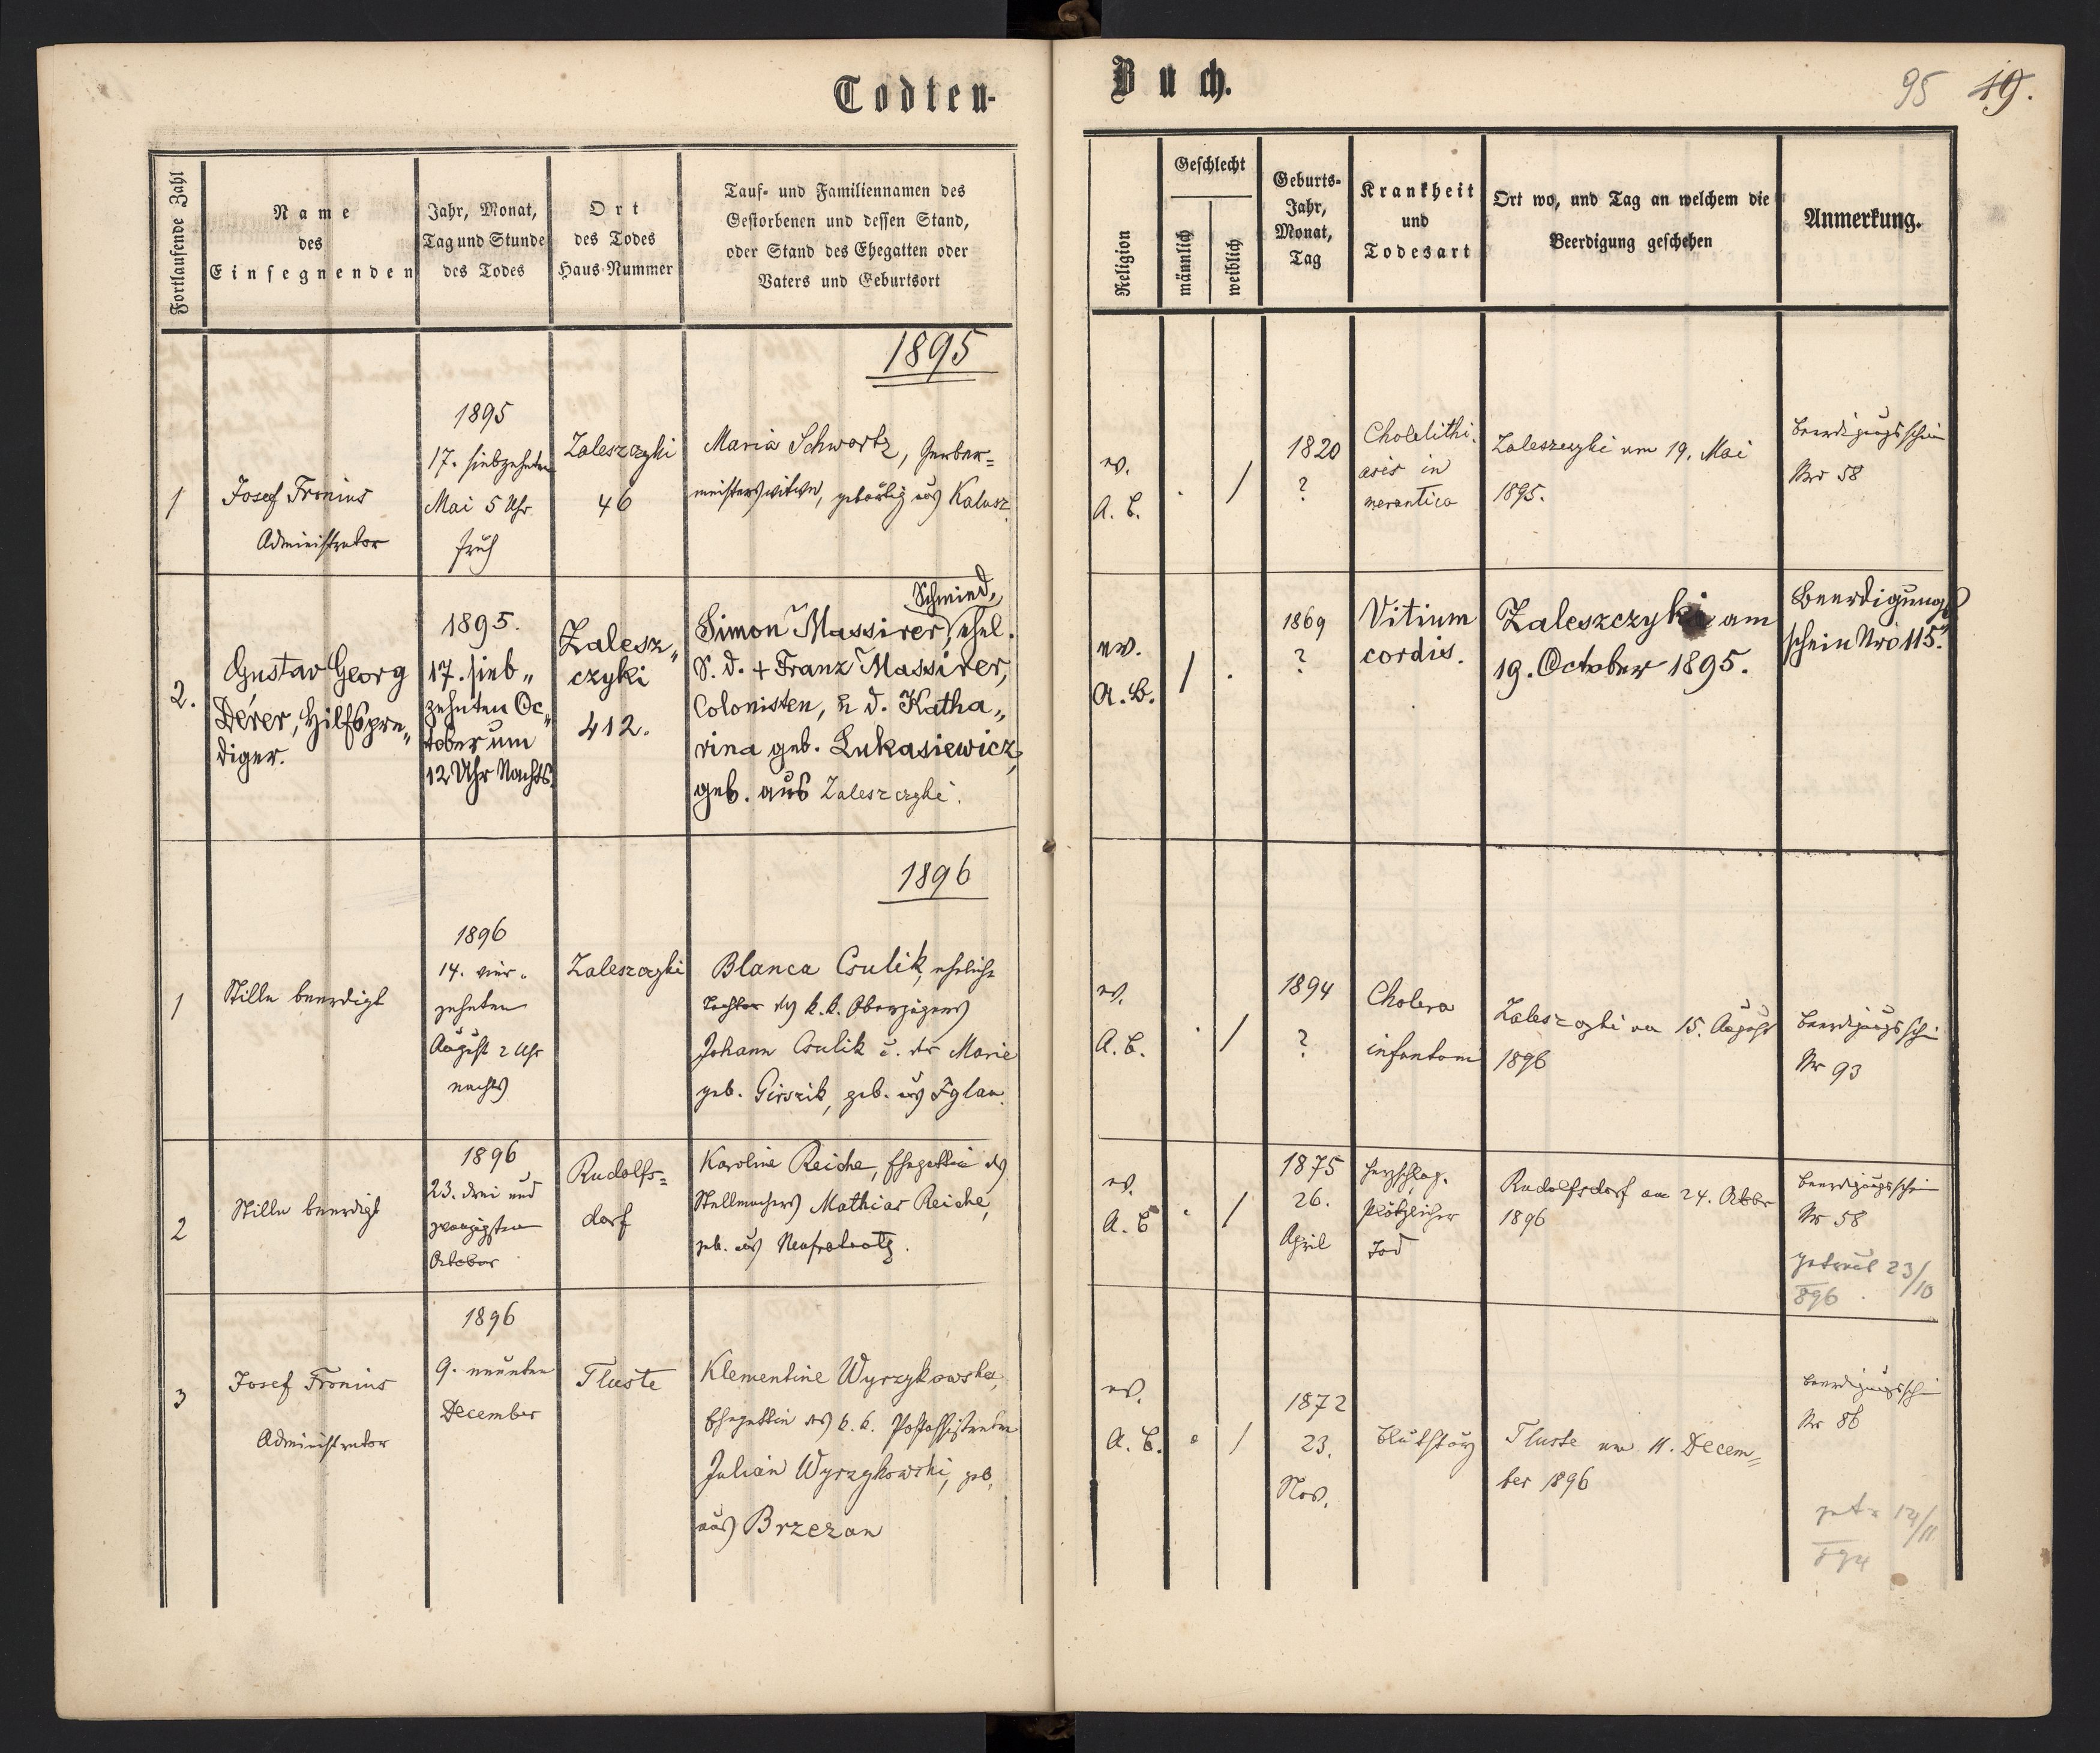 Todten-
Buch.
95 49.
Fortlaufende Zahl
Name
des
Einsegnenden
Jahr, Monat,
Tag und Stunde
des Todes
Ort
des Todes
Haus-Nummer
Tauf- und Familiennamen des
Gestorbenen und dessen Stand,
oder Stand des Ehegatten oder
Vaters und Geburtsort
Religion
Geschlecht
männlich
weiblich
Geburts-
Jahr,
Monat,
Tag
Krankheit
und
Todesart
Ort wo, und Tag an welchem die
Beerdigung geschehen
Anmerkung.
1895
1
Josef Fronius
Administrator
1895
17. siebzehnten
Mai 5 Uhr
früh
Zaleszczyki
46
Maria Schwartz, Gerber=
meisterswitwe, gebürtig aus Kalusz.
ev.
A. B.
.
/
1820
?
Cholelithi.
asis in
Zaleszczyki am 19. Mai
1895.
Beerdigungsschein
Nro 58
2.
Gustav Georg
Dérer, Hilfspre„
diger.
1895.
17. sieb„
zehnten Oc„
tober um
12 Uhr Nachts.
Zalesz„
czyki
412.
Schmied,
Simon Massirer, ehel.
S. d. + Franz Massirer,
Colonisten, u d. Katha„
rina geb. Lukasiewicz,
geb. aus Zaleszczyki.
ev.
A. B.
/
.
1869
?
Vitium
cordis.
Zaleszczyki am
19. October 1895.
Beerdigungs
schein Nro 115.
1896
1
Stille beerdigt
1896
14. vier„
zehnten
August 2 Uhr
nachts
Zaleszczyki
Blanca Csulik, eheliche
Tochter des k. k. Oberjägers
Johann Csulik u. der Marie
geb. Girszik, geb. aus Iglau.
ev.
A. B.
.
/
1894
?
Cholera
infantom
Zaleszczyki am 15. August
1896
Beerdigungssch
Nr 93
2
Stille beerdigt
1896
23. drei und
zwanzigsten
October
Rudolfs=
dorf
Karoline Reiche, Ehegattin des
Stellmachers Mathias Reiche,
geb. aus
ev.
A. B
.
/
1875
26.
April
Herzschlag.
Plötzlicher
Tod
Rudolfsdorf am 24. Octbr
1896
Beerdigungsschein
Nr 58
getraut 23/10
896
3
Josef Fronius
Administrator
1896
9. neunten
December
Tluste
Klementine Wyrzykowska,
Ehegattin des k. k. Postassistenten
Julian Wyrzykowski, geb.
aus Brzezan
ev.
A. B.
.
/
1872
23.
Nov.
Blutsturz
Tluste am 11. Decem„
ber 1896
Beerdigungssch
Nr 86
getr 12/11
894